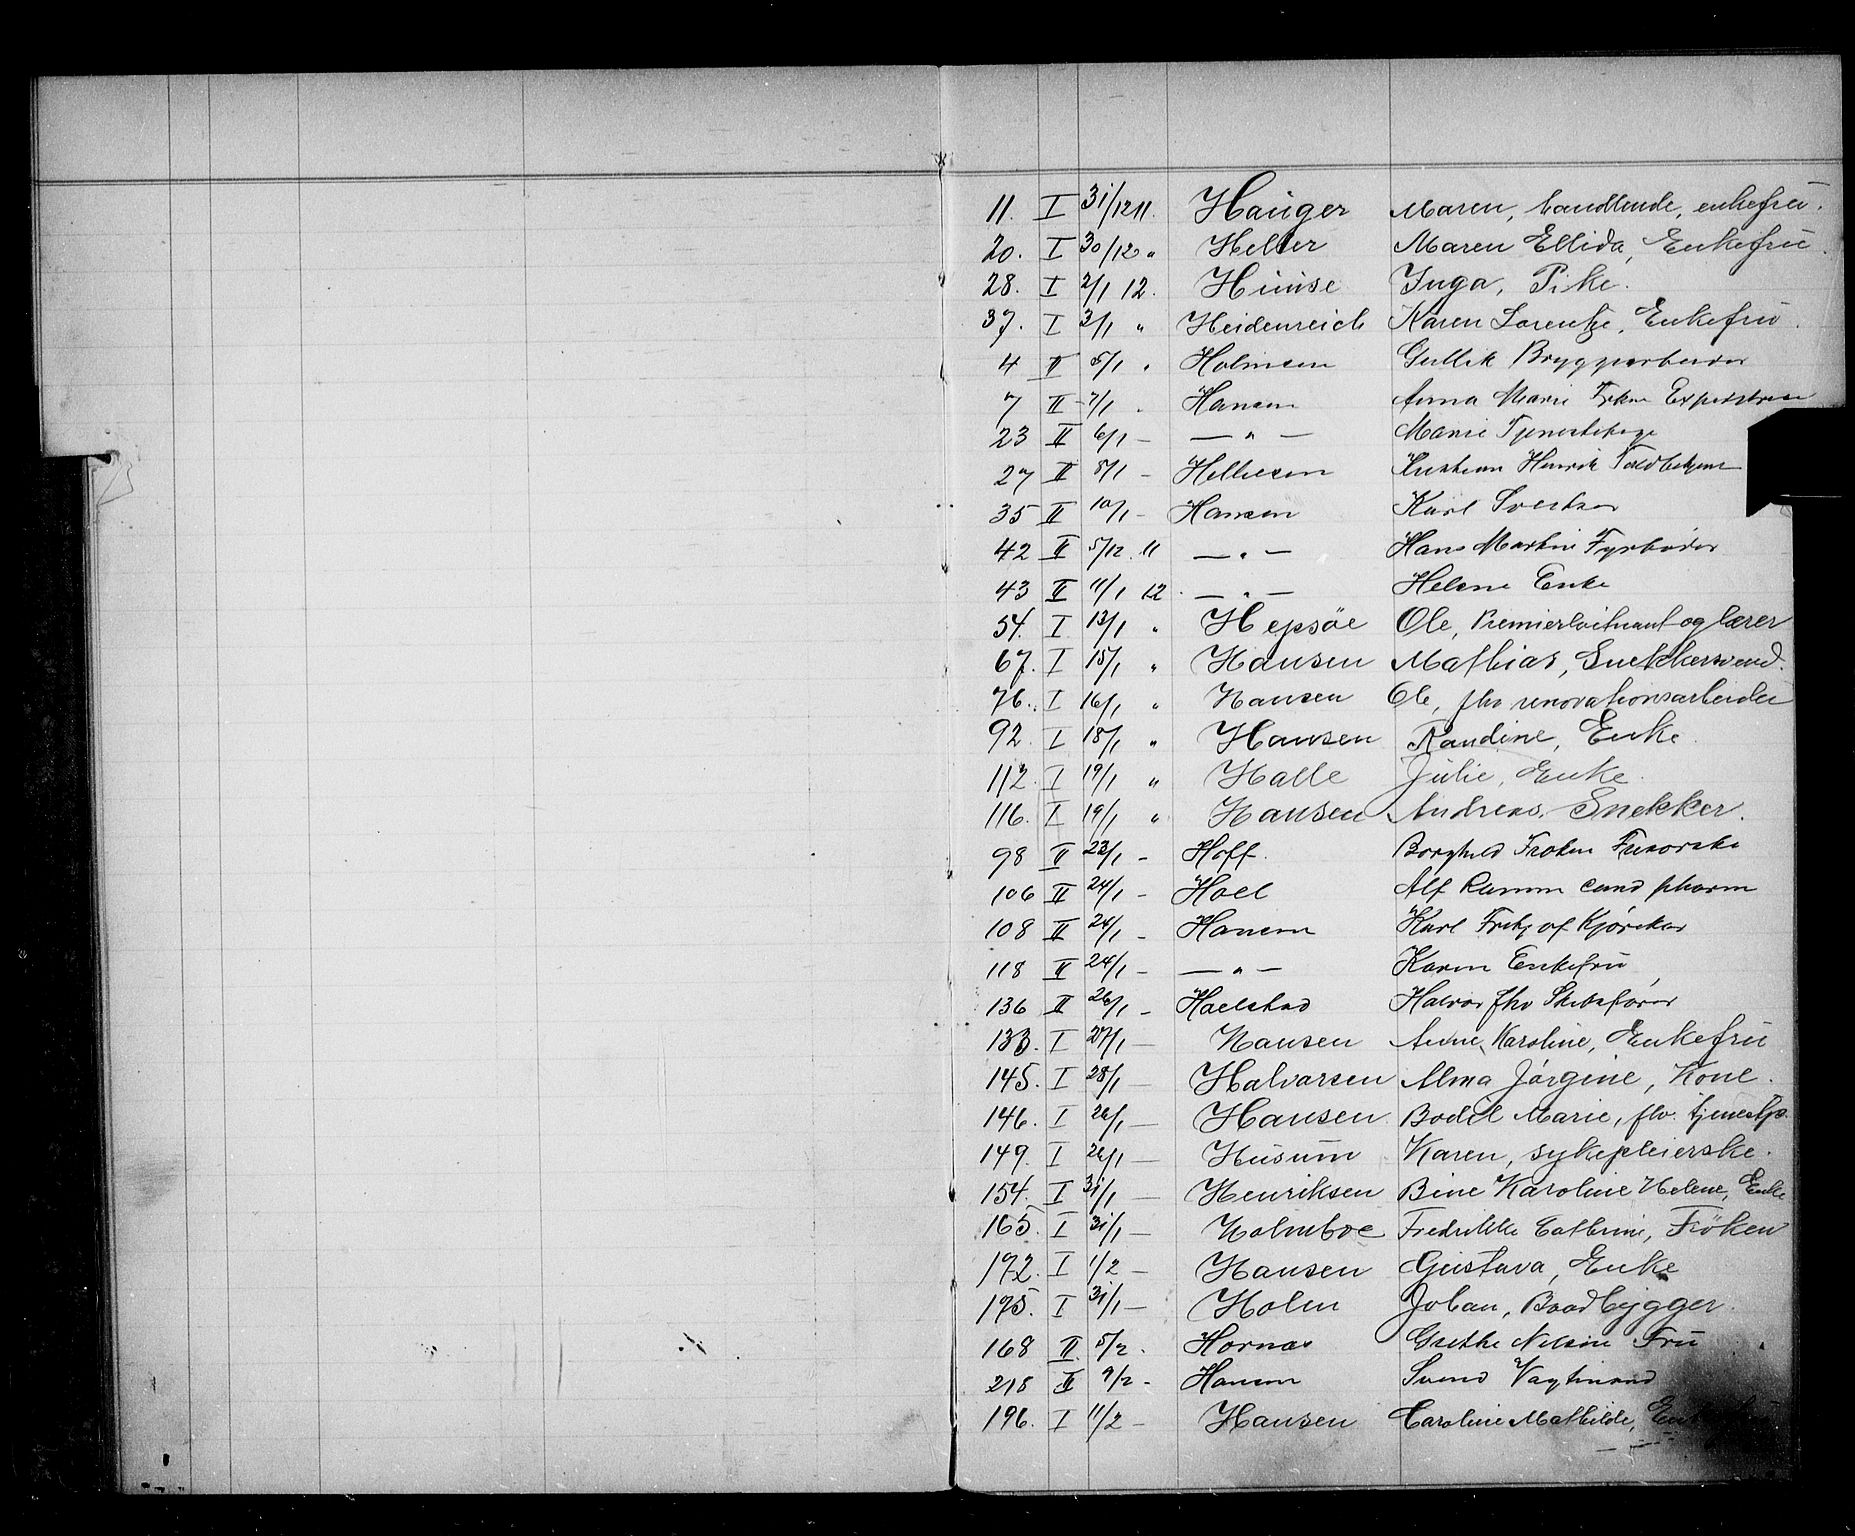 11. I 31/12 11. Hauger Maren, handlende, enkefru.
20. I 30/12 " Heller Maren Ellida, Enkefru.
28. I 2/1 12. Huuse Inga, Pike.
37. I 3/1 " Heidenreich Karen Lorentze, Enkefru.
4 II 5/1 " Holmsen Gullik Bryggearbeider
7 II 7/1 " Hansen Anna Marie Frkn Expeditrise
23 II 6/1 - — " — Marie Tjenestepige
27 II 8/1 - Helliesen Kristian Henrik
35 II 10/1 - Hansen Karl
42 II 5/12 11 — " — Hans Martin Fyrbøder
43 II 11/1 12. — " — Helene Enke
54. I 13/1 " Hepsöe Ole, Premierløitnant og lærer
67. I 15/1 " Hansen Mathias, Snekkersvend.
76. I 16/1 " Hansen Ole, fhv renovationsarbeider
92. I 18/1 " Hansen Randine, Enke.
112. I 19/1 " Halle Julie, Enke.
116. I 19/1 " Hansen Andreas, Snekker.
98 II 23/1 - Hoff. Borghild Frøken Friserske
106 II 24/1 - Hoel Alf Ramm cand pharm
108 II 24/1 - Hansen Karl Fritjof Kjørekar
118 II 24/1 - — " — Karen Enkefru
136 II 26/1 - Haelstad Halvor fhv Skibsfører
133. I 27/1 — Hansen Anne Karoline, Enkefru
145. I 28/1 — Halvorsen Alma Jörgine, Kone.
146. I 26/1 — Hansen Bodil Marie, fhv. tjenestp.
149. I 26/1 — Husum Karen, sykepleierske.
154. I 31/1 — Henriksen Bine Karoline Helene, Enke
165. I 31/1 — Holmboe Fredrikke Cathrine, Fröken
172. I 1/2 — Hansen Gustava, Enke
175. I 31/1 — Holm Johan, Baadbygger.
168 II 5/2 . Hornæs Grethe Nilsine Fru
218 II 9/2 - Hansen Svend Vagtmand
196. I 11/2 — Hansen Caroline Mathilde,